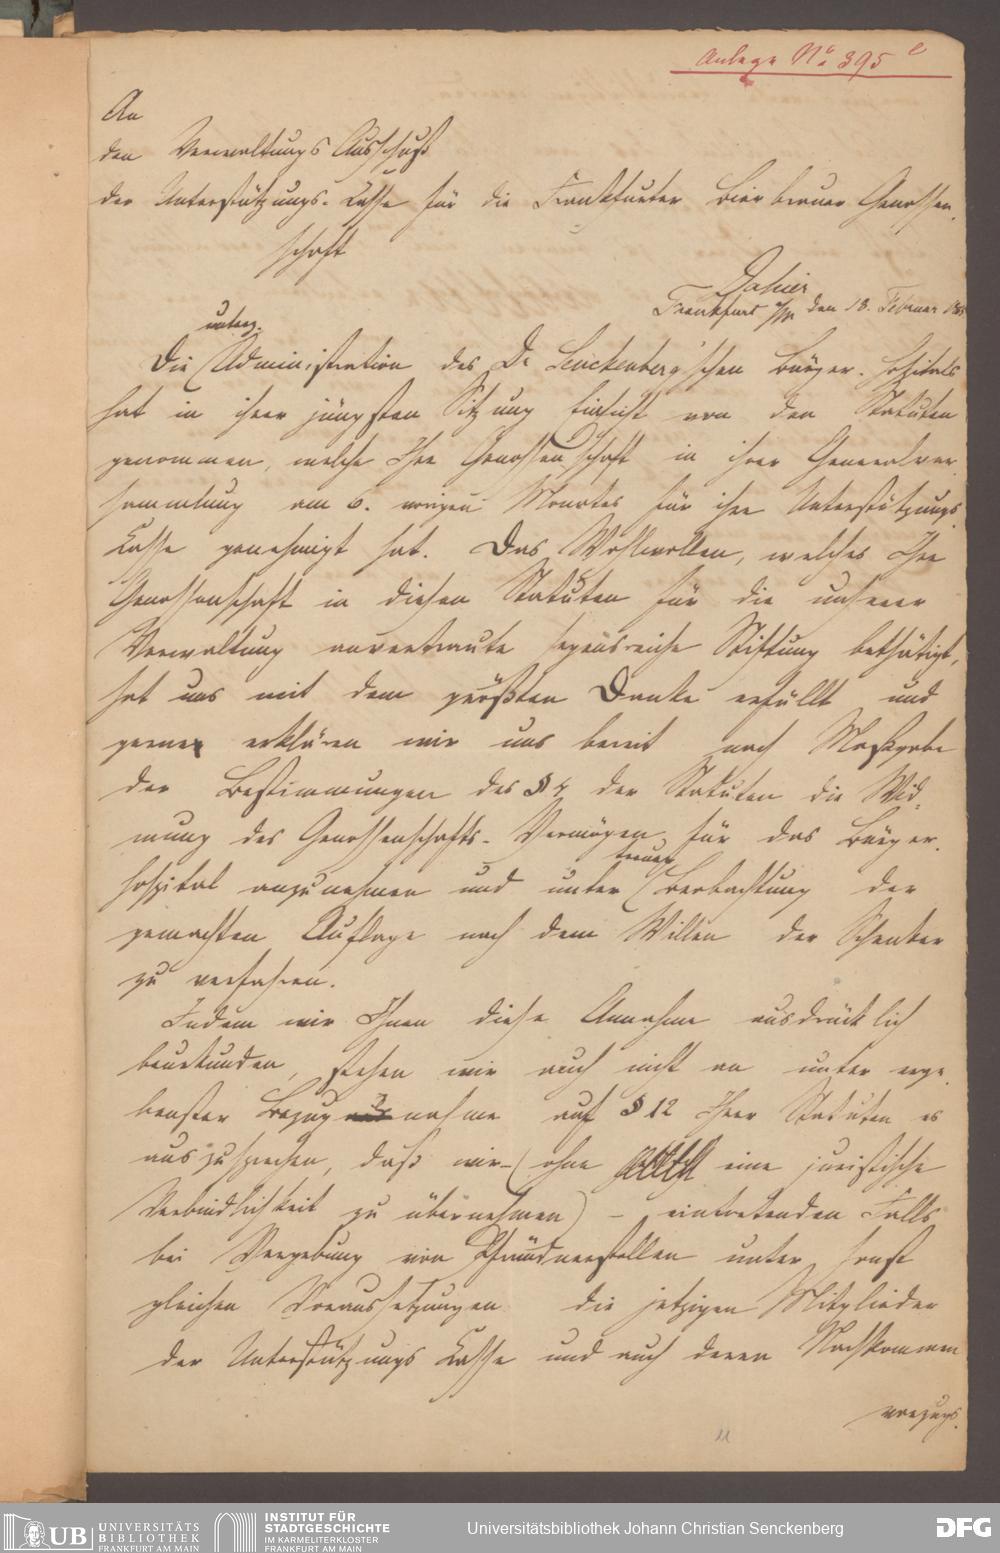 Anlage No 395 e
An
den Verwaltungs Ausschuß
der Unterstützungs-Casse für die Frankfurter Bierbrauer Genossen-
schaft
Dahier
Frankfurt a/M den 18. Februar
unterz.
Die Administration des Dr Senckenberg'schen Bürger-Hospitals
hat in ihrer jüngsten Sitzung Einsicht von den Statuten
genommen, welche Ihre Genossenschaft in ihrer Generalver-
sammlung am 6. vorigen Monates für ihre Unterstützungs-
Casse genehmigt hat. Das Wohlwollen, welches Ihre
Genossenschaft in diesen Statuten für die unserer
Verwaltung anvertraute segensreiche Stiftung bethätigt,
hat uns mit dem größten Danke erfüllt und
gerne erklären wir uns bereit nach Maßgabe
der Bestimmungen des § 4 der Statuten die Wid-
mung des Genossenschafts-Vermögen für das Bürger-
hospital anzunehmen und unter treuer Beobachtung der
gemachten Auflage nach dem Willen der Schenker
zu verfahren.
Indem wir Ihnen diese Annahme ausdrücklich
beurkunden, stehen wir auch nicht an unter erge-
benster Bezugnahme auf § 12 Ihrer Statuten es
auszusprechen, daß wir – (ohne eine juristische
Verbindlichkeit zu übernehmen) – eintretenden Falls
bei Vergebung von Pfründnerstellen unter sonst
gleichen Voraussetzungen die jetzigen Mitglieder
der Unterstützungs Casse und auch deren Nachkommen
vorzugs-
11
UB UNIVERSITÄTS
BIBLIOTHEK
FRANKFURT AM MAIN
INSTITUT FÜR
STADTGESCHICHTE
IM KARMELITERKLOSTER
FRANKFURT AM MAIN
Universitätsbibliothek Johann Christian Senckenberg
DFG